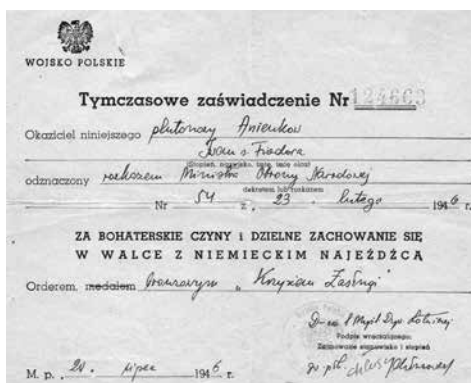 WOJSKO POLSKIE
Tymczasowe zaświadczenie Nr 124663
Okaziciel niniejszego plutonowy Anienkow
Iwan s. Fiodora
(Stopień, nazwisko, imię, imię ojca)
odznaczony rozkazem Ministra Obrony Narodowej
dekretem lub rozkazem
Nr 54 z. 23. lutego 1946 r.
ZA BOHATERSKIE CZYNY i DZIELNE ZACHOWANIE SIĘ
W WALCE Z NIEMIECKIM NAJEŹDŹCĄ
Orderem, medalem bronzowym „Krzyżem Zasługi"
D-ca 1 Dyw. Lotniczej
Podpis wręczającego
Zajmowane stanowisko i stopień
M. p. 20. lipca 1946 r.